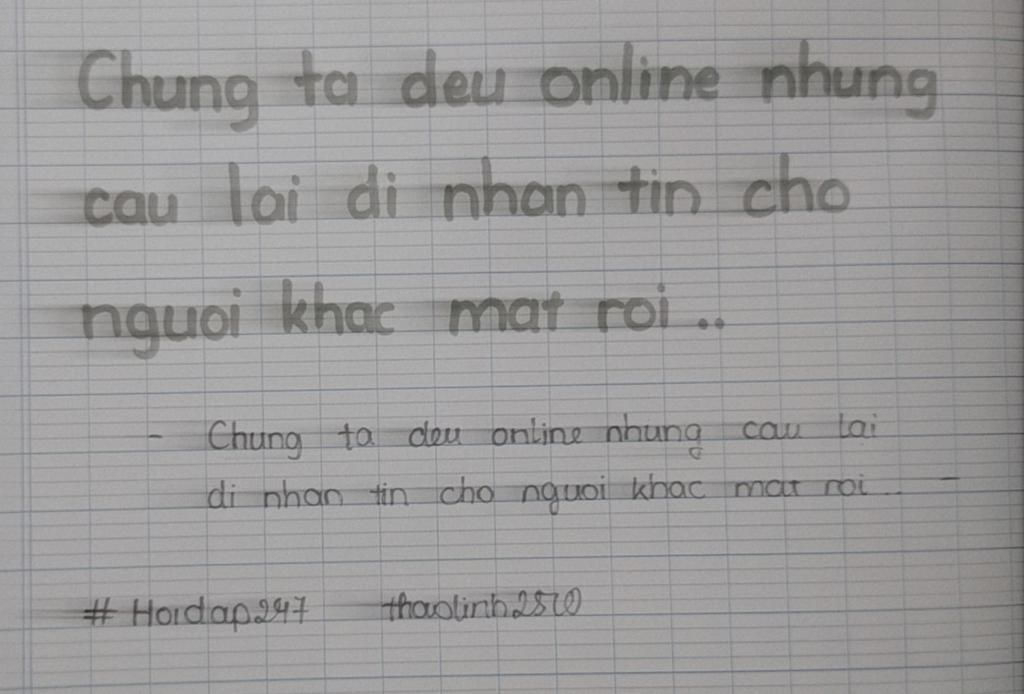 Chung ta deu online nhung
cau lai di nhan tin cho
nguoi khac mat roi..
- Chung ta deu online nhung cau lai
di nhan tin cho nguoi khac mat roi.. -
#Hoidap247 thaolinh2510